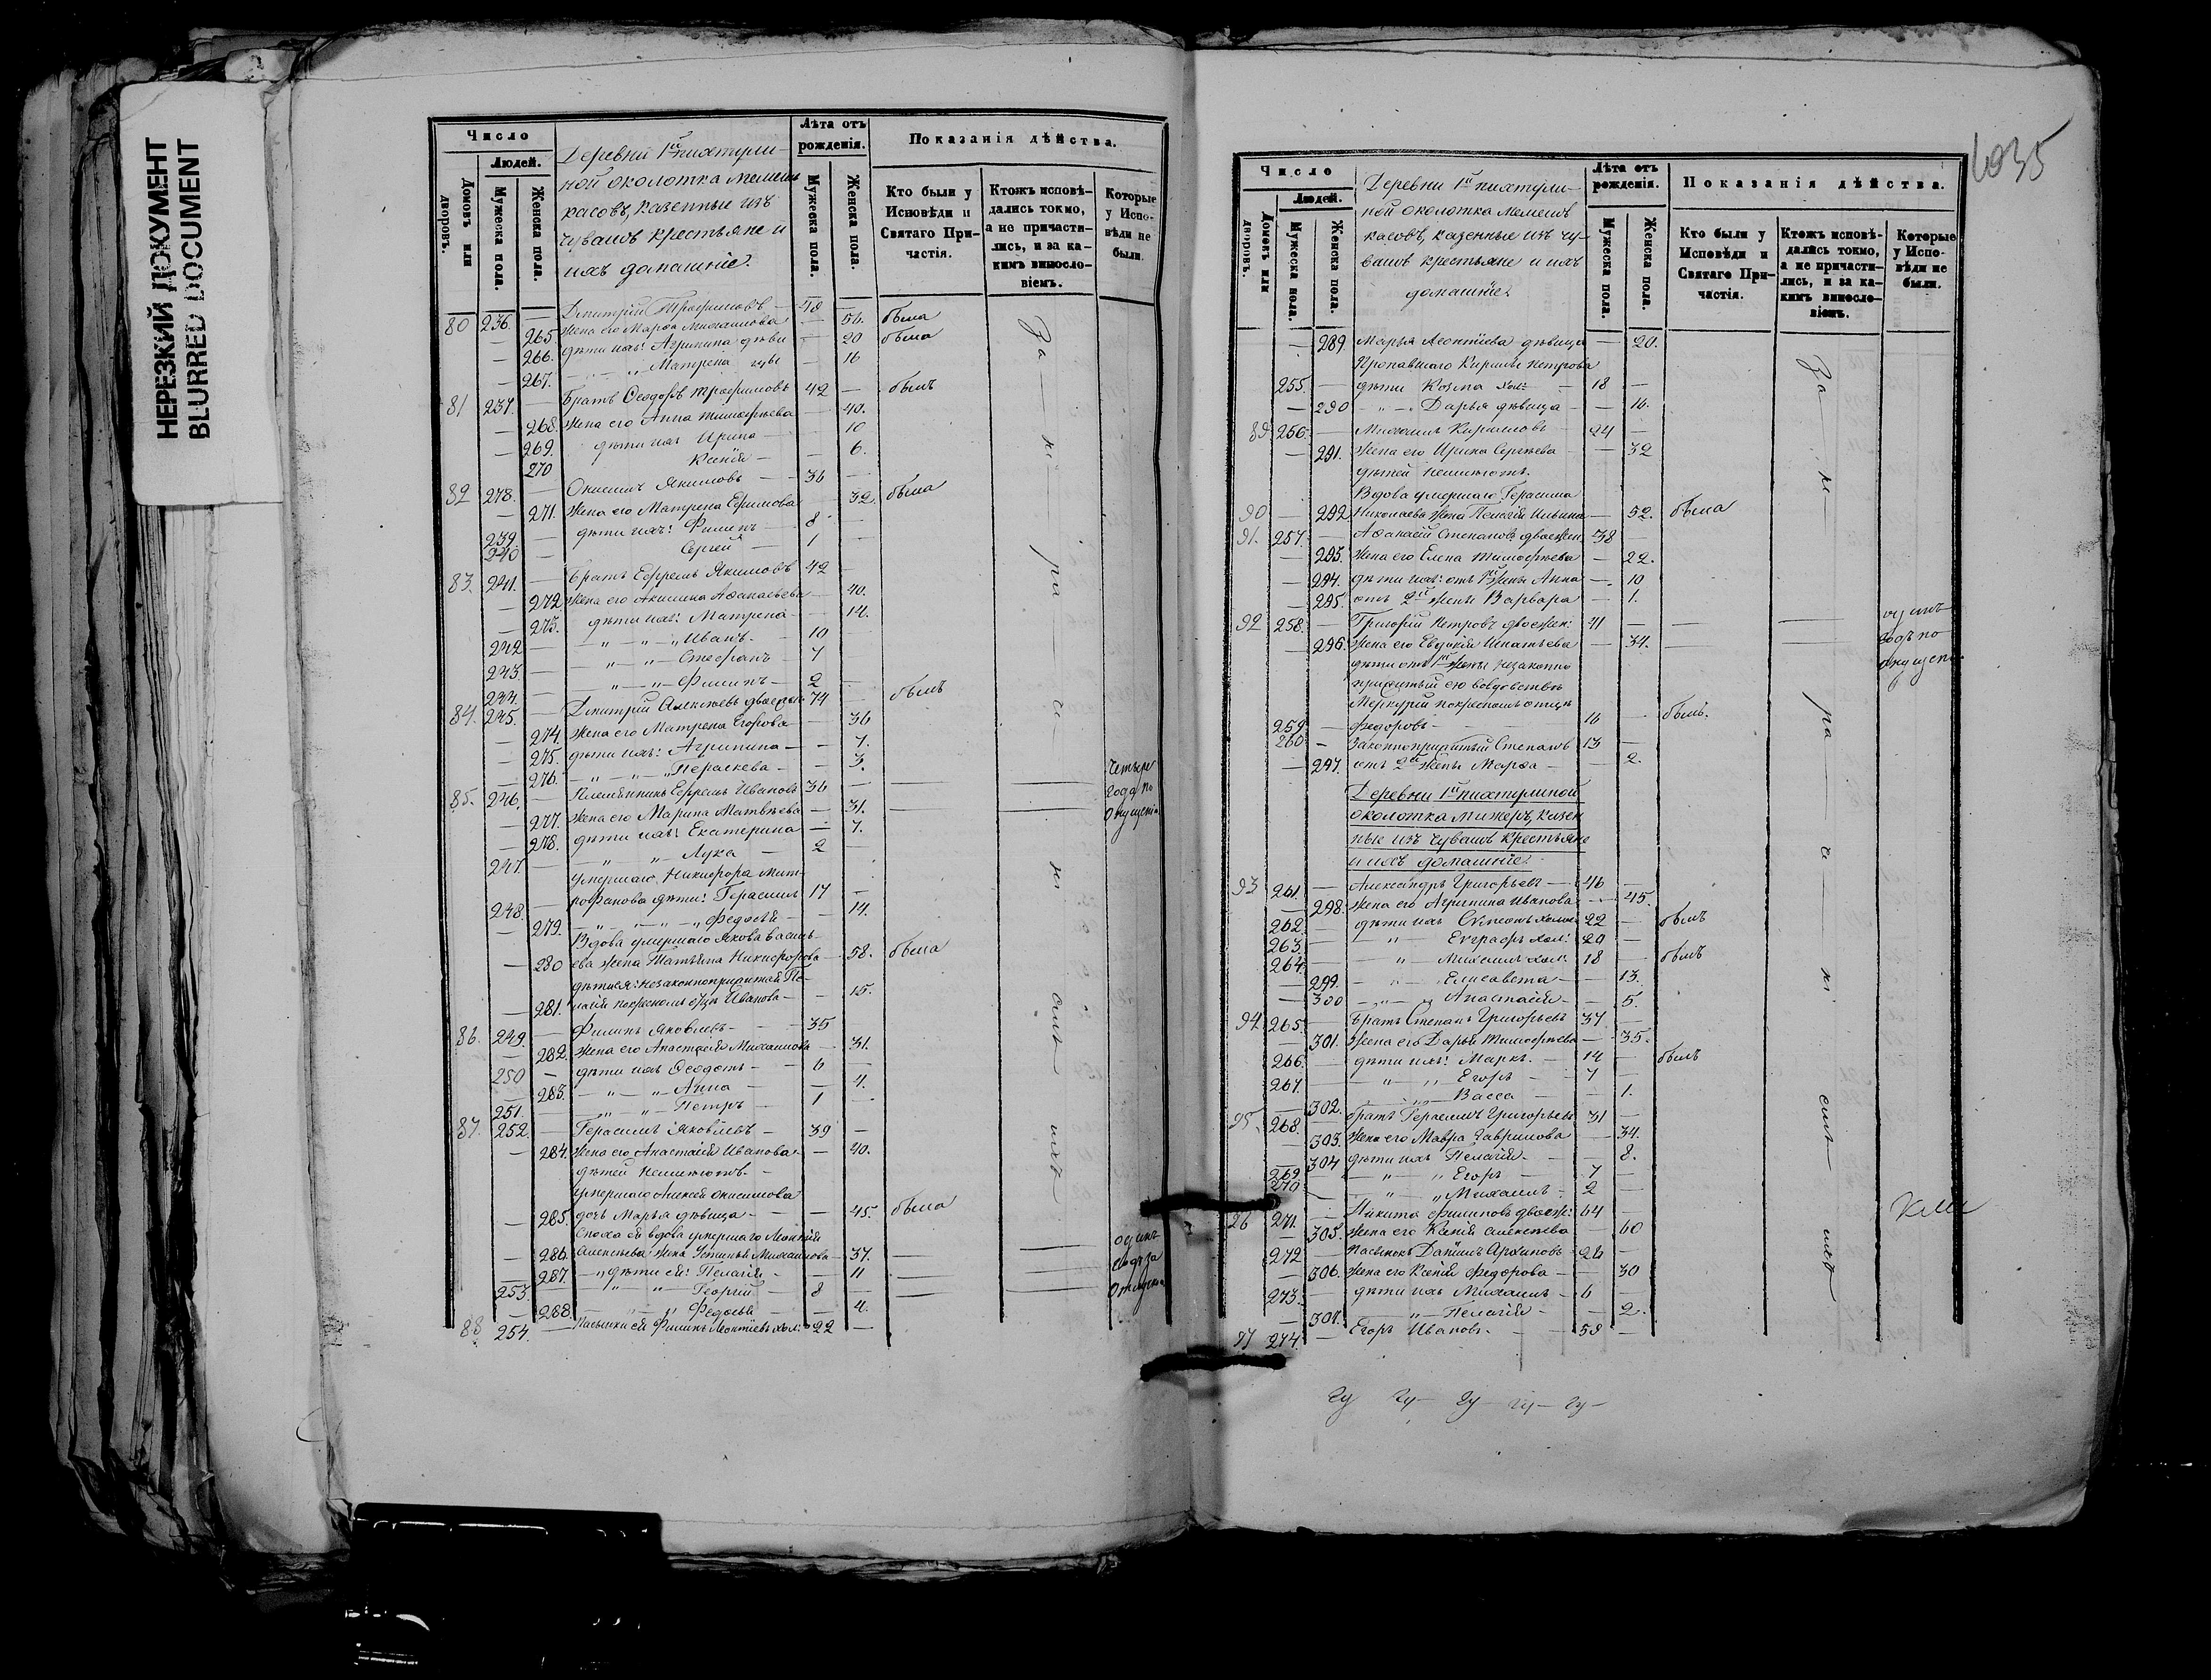 НЕРЕЗКИЙ ДОКУМЕНТ
BLURRED DOCUMENT
Число
Людей.
Домовъ или дворовъ.
Мужеска пола.
Женска пола.
Деревни 1й пихтули-
ной околотка Мемешъ
касовъ, казенные изъ
чувашъ крестьяне и
ихъ домашніе.
Лѣта отъ рожденія.
Мужеска пола.
Женска пола.
Показанія дѣйства.
Кто были у Исповѣди и Святаго Причастія.
Ктожъ исповѣ-
дались токмо,
а не причасти-
лись, и за ка-
кимъ винослo-
віемъ.
Которые
у Испо-
вѣди не
были.
80 236. — Дмитрій Трофимовъ — 48 —
— 265. Жена его Марѳа Михаилова — 54. была
— 266. дѣти ихъ: Агрипина дѣви — 20 была
— 267. Матрена цы — 16
81 237. — Братъ Ѳеодоръ Трофимовъ 42 — былъ
— 268. Жена его Анна Тимофѣева — 40.
— 269. дѣти ихъ Ирина — 10
270 Ксенія — 6.
82 278. — Онисимъ Якимовъ — 36 —
— 271. Жена его Матрена Ефимова 32. была
239. — дѣти ихъ: Филипъ — 8 —
240 — Сергей — 1 —
83. 241. — Братъ Ефремъ Якимовъ 42 —
— 272 Жена его Акилина Аѳанасьева — 40.
— 273. дѣти ихъ: Матрена — 14.
242 — Иванъ. — 10 —
243. — Стефанъ — 7
244. — Филипъ — 2 —
84. 245. — Дмитрій Алексѣевъ двоежен 74 былъ
— 274. Жена его Матрена Егорова — 36
— 275. дѣти ихъ: Агрипина — 7.
— 276. Пераскева — 3.
85. 246. — Племянникъ Ефремъ Ивановъ 36 — четыре
года по
опущенію
— 277. Жена его Марина Матвѣева — 31.
— 278. дѣти ихъ: Екатерина — 7.
247. — Лука — 2 —
умершаго Никифора Мит-
248. — рофанова дѣти: Герасимъ 17 —
— 279. Федосья — 14.
Вдова умершаго Якова Василь-
— 280 ева жена Татьяна Никифорова — 58. была
— 281. крестномъ отцѣ Иванова — 15.
86. 249. — Филипъ Яковлевъ — 35
— 282. Жена его Анастасія Михаилова — 31.
250 — дѣти ихъ Ѳеодотъ — 6 —
— 283. Анна — 4.
251. Петръ — 1 —
87. 252. — Герасимъ Яковлевъ — 39 —
— 284. Жена его Анастасія Иванова — 40.
дѣтей неимѣютъ. —
умершаго Алексѣя Онисимова
— 285. дочь Марья дѣвица — 45. была
Сноха ей вдова умершаго Леонтія
— 286. Алексѣева жена Устинья Михаилова — 37. одинъ
— 287. дѣти ей: Пелагія — 11
253. — Георгій — 8
— 288. Федосья — 4.
88 254. — Пасынки ей Филипъ Леонтіевъ хол: 22 —
За не раченіемъ ихъ
6035
Число
Людей.
Домовъ или дворовъ.
Мужеска пола.
Женска пола.
Деревни 1й пихтули-
ной околотка Мемешъ
касовъ, казенные изъ чу-
вашъ крестьяне и ихъ
домашніе.
Лѣта отъ рожденія.
Мужеска пола.
Женска пола.
Показанія дѣйства.
Кто были у Исповѣди и Святаго Причастія.
Ктожъ исповѣ-
дались токмо,
а не причасти-
лись, и за ка-
кимъ винослo-
віемъ.
Которые
у Испо-
вѣди не
были.
— 289. Марья Леонтіева дѣвица — 20.
Пропавшаго Кирилы Петрова
255. — дѣти Козма хол: 18 —
— 290 Дарья дѣвица — 16.
89 256. — Михаилъ Кириловъ — 24 —
— 291. Жена его Ирина Сергѣева — 32
дѣтей неимѣютъ.
Вдова умершаго Герасима
90 — 292 Николаева жена Пелагія Ильина — 52. была
91. 257. — Аѳанасій Степановъ двоежен. 38 —
— 293. Жена его Елена Тимофѣева — 22.
— 294. дѣти ихъ: отъ 1й жены Анна — 10
— 295. отъ 2й жены Варвара — 1.
92 258. — Григорій Петровъ двоежен: 41 — одинъ
годъ по
опущенію
— 296. Жена его Евдокія Игнатьева — 34.
дѣти отъ 1й жены незаконно
прижитый ею вовдовствѣ
Меркурій покрестномъ отцѣ
259 — Федоровъ — 16 — былъ.
260 — Законноприжитый Степанъ 13 —
— 297. отъ 2й жены Марѳа — 2.
Деревни 1й пихтулиной
околотка Мижеръ, казен
ные изъ чувашъ крестьяне
и ихъ домашніе.
93 261. — Александръ Григорьевъ — 46 —
— 298. Жена его Агрипина Иванова — 45.
262. — дѣти ихъ Симеонъ холос 22 — былъ
263. — Евграфъ хол: 20 —
264. — Михаилъ хол: 18 — былъ
— 299. Елисавета — 13.
— 300 Анастасія — 5.
94. 265. — Братъ Степанъ Григорьевъ 37 —
— 301. Жена его Дарья Тимофѣева — 35.
266. — дѣти ихъ: Маркъ. — 14 — былъ
267. — Егоръ — 7 —
— 302. Васса — 1.
95. 268. — братъ Герасимъ Григорьевъ 31 —
— 303. Жена его Мавра Гаврилова — 34.
— 304 дѣти ихъ Пелагія — 8.
269 — Егоръ — 7 —
270 — Михаилъ — 2 —
26 271. — Никита Филиповъ двоеж: 64 —
— 305. Жена его Ксенія Алексѣева 60
272 — Пасынокъ Даніилъ Архиповъ — 26 —
— 306. Жена его Ксенія Федорова — 30
273. — дѣти ихъ Михаилъ — 6 —
— 307. Пелагія — 2.
97 274. — Егоръ Ивановъ — 58 —
За не раченіемъ ихъ